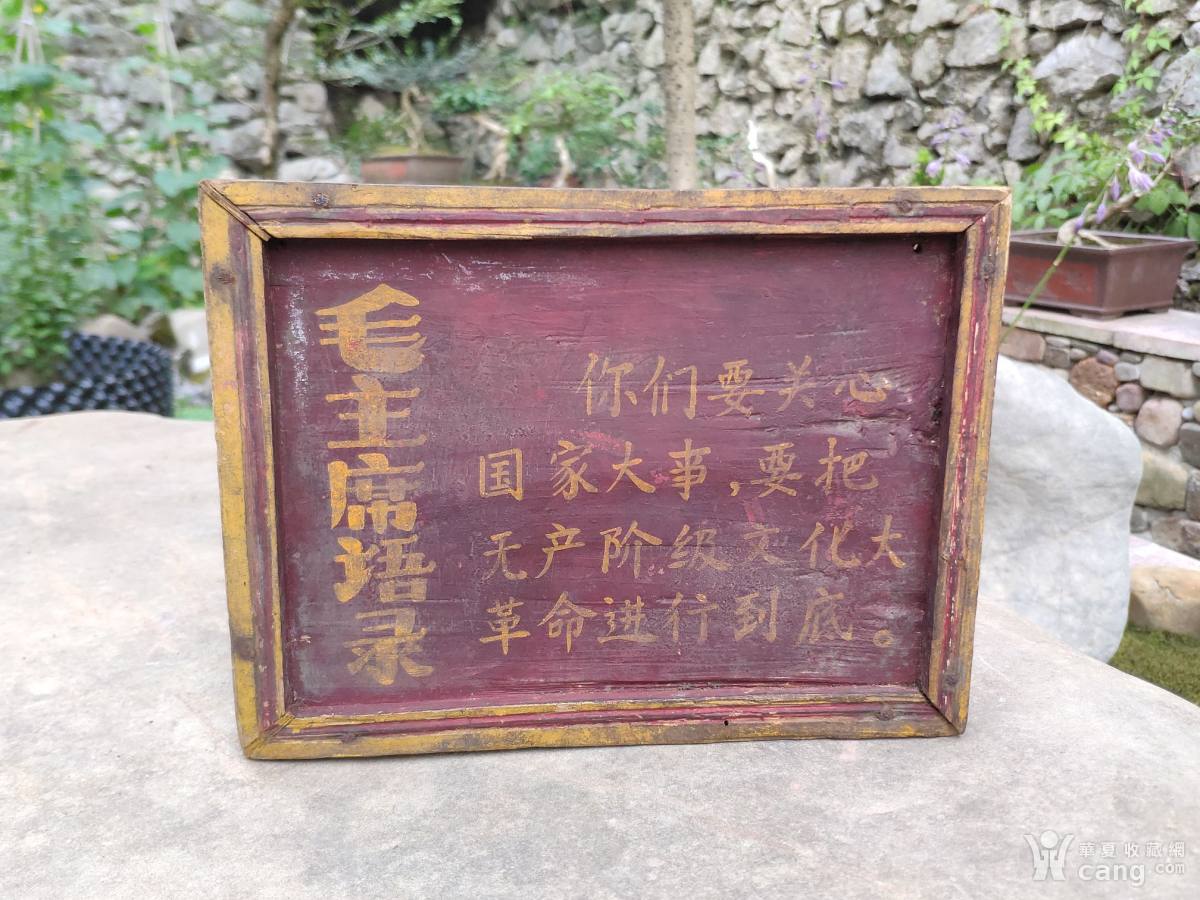 毛主席语录
你们要关心
国家大事,要把
无产阶级文化大
革命进行到底。
華夏收藏網
cang.com